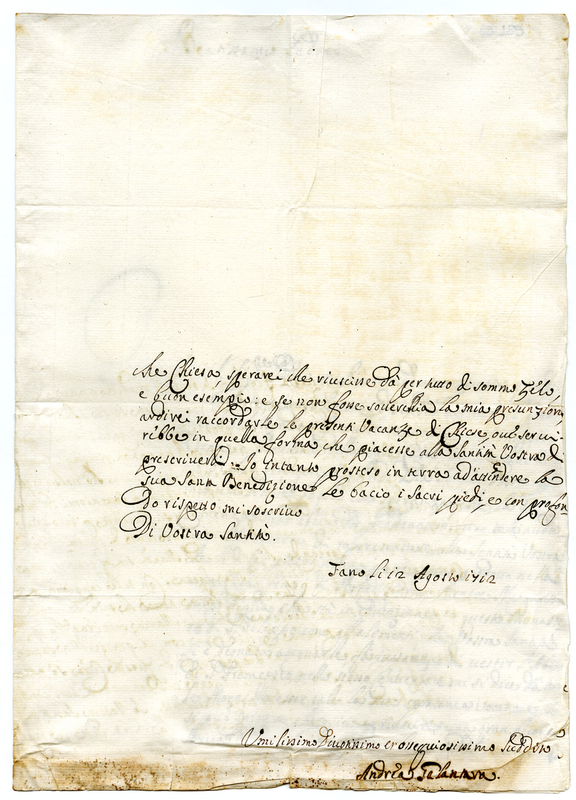 che Chiesa, sperarei che riuscisse da per tutto di sommo Zelo,
e buon esempio: e se non fosse soverchia la mia presunzione,
ardirei raccordarle le presenti Vacanze di Chiese, ove servi-
rebbe in quella forma, che piacesse alla Santità Vostra di
prescriverli. Io intanto prosteso in terra ad attendere la
sua Santa Benedizione le bacio i Sacri piedi, e con profon-
do rispetto mi soscrivo
Di Vostra Santità.
Fano li 12 Agosto 1712
Umilissimo Divotissimo et ossequiosissimo Suddito
Andrea